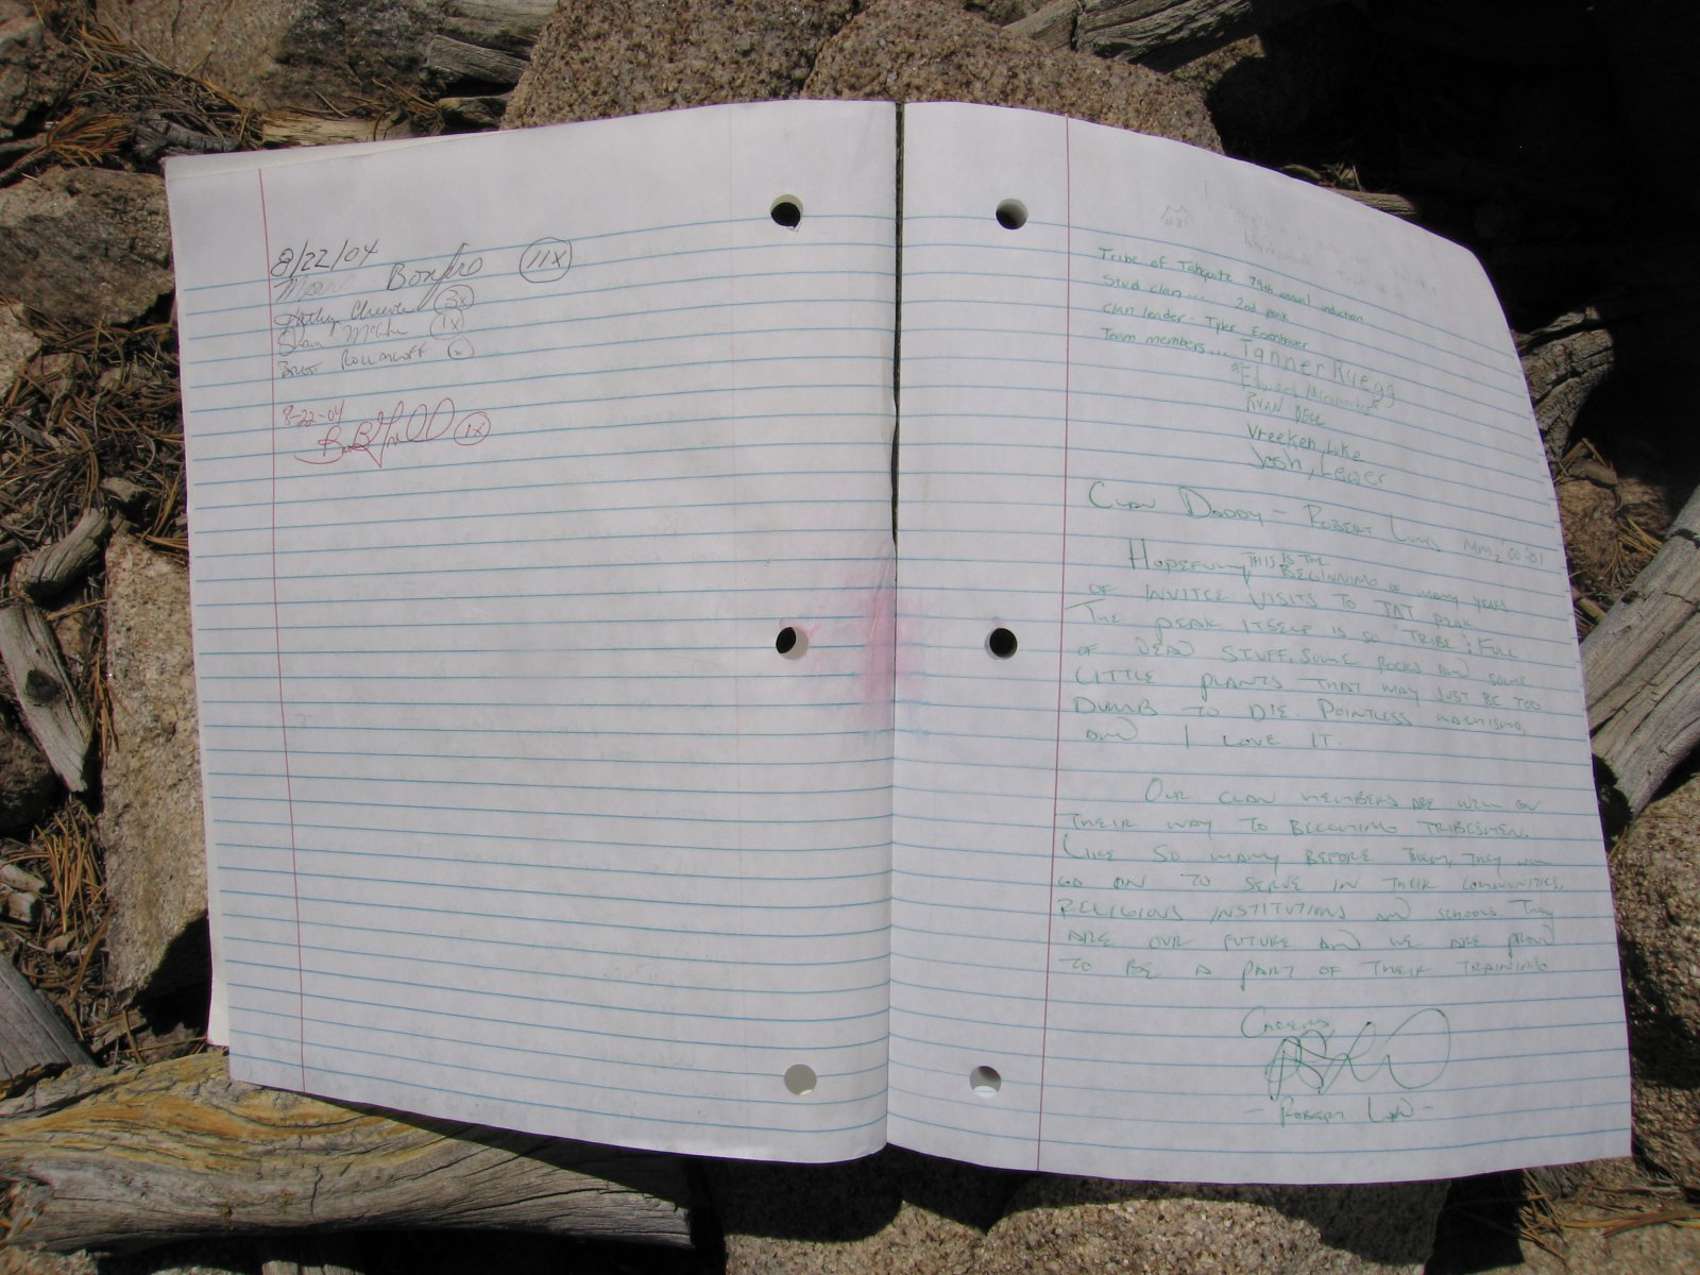 8/22/04
Bonfro 11X
Kathy 3x
1x
8-22-04
1x
Tribe of Tahquitz 79th annual induction
Stud clan... 2nd peak
Clan leader - Tyler
Team members... Tanner Ruegg
RYAN DELL
Vreeken, Luke
Josh, Leger
CLAN DADDY - ROBERT 00-01
HOPEFULLY THIS IS THE BEGINNING OF MANY YEARS
OF VISITS TO TAT PEAK
THE PEAK ITSELF IS SO "TRIBE": FULL
OF DEAD STUFF, SOME ROCKS AND SOME
LITTLE PLANTS THAT MAY JUST BE TOO
DUMB TO DIE. POINTLESS MACHISMO,
AND I LOVE IT.
OUR CLAN MEMBERS ARE WELL ON
THEIR WAY TO BECOMING TRIBESMEN.
LIKE SO MANY BEFORE THEM, THEY WILL
GO ON TO SERVE IN THEIR COMMUNITIES,
RELIGIOUS INSTITUTIONS AND SCHOOLS THEY
ARE OUR FUTURE AND WE ARE PROUD
TO BE A PART OF THEIR TRAINING
CHEERS,
- ROBERT -